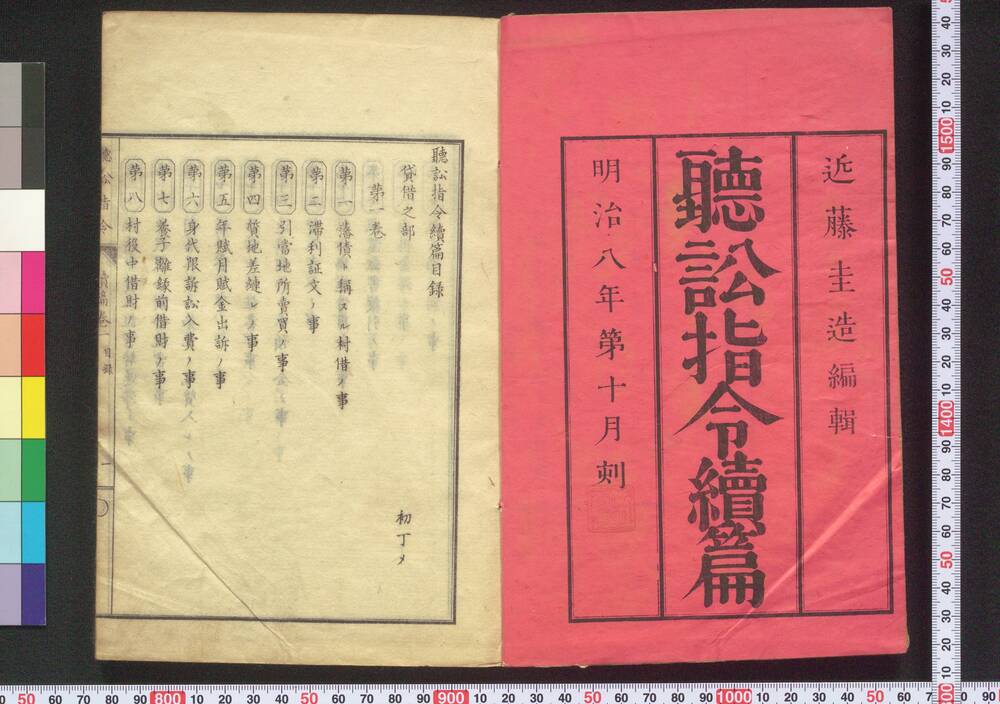 近藤圭造編輯
聽訟指令續篇
明治八年第十月刻
聽訟指令續篇目錄
貸借之部
第一巻
初丁メ
第一 藩債ト稱スル村借ノ事
第二 滞利証文ノ事
第三 引當地所賣買ノ事
第四 質地差縺レノ事
第五 年賦月賦金出訴ノ事
第六 身代限訴訟入費ノ事
第七 養子離縁前借財ノ事
第八 村役中借財ノ事
聽訟指令 續篇巻一 目錄 一